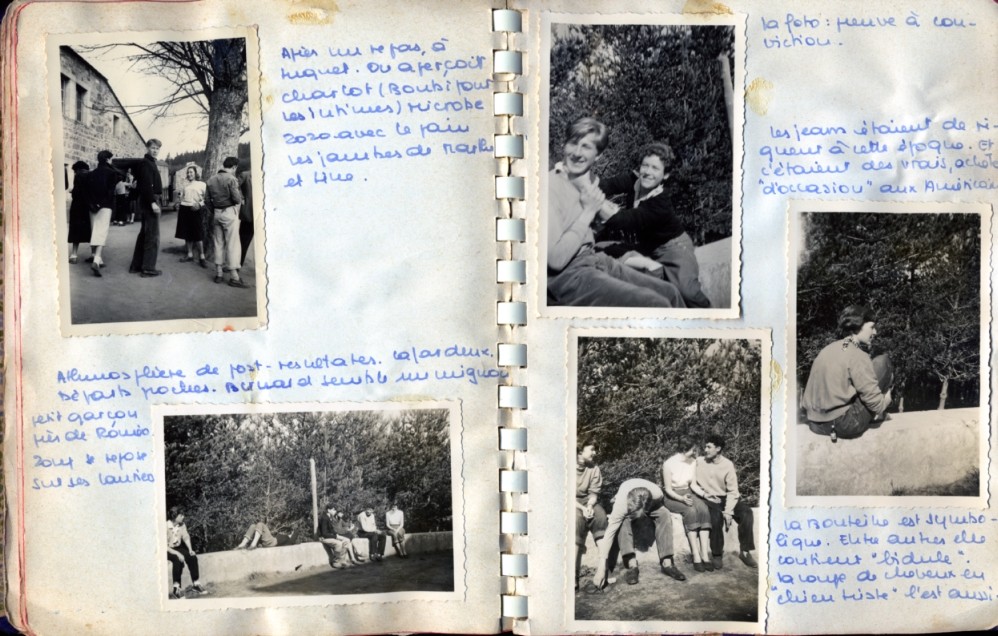 Après un repas, à
Huguet. On aperçoit
Charlot (Boubi pour
les intimes) Microbe
Zozo avec le pain
les jambes de
et Line.
Athmosphère de post-resultates. Cafardeux.
Départs proches. Bernard semble un mignon
petit garçon
près de Roméo
Zouf se repose
sur ses lauriers
la foto: preuve à con-
viction.
les jeans étaient de ri-
gueur à cette époque. Et
c'étaient des vrais, achetés
"d'occasion" aux Américains
la Bouteille est symbo-
lique. Entre autres elle
contient "bidule".
la coupe de cheveux en
"chien triste" l'est aussi.